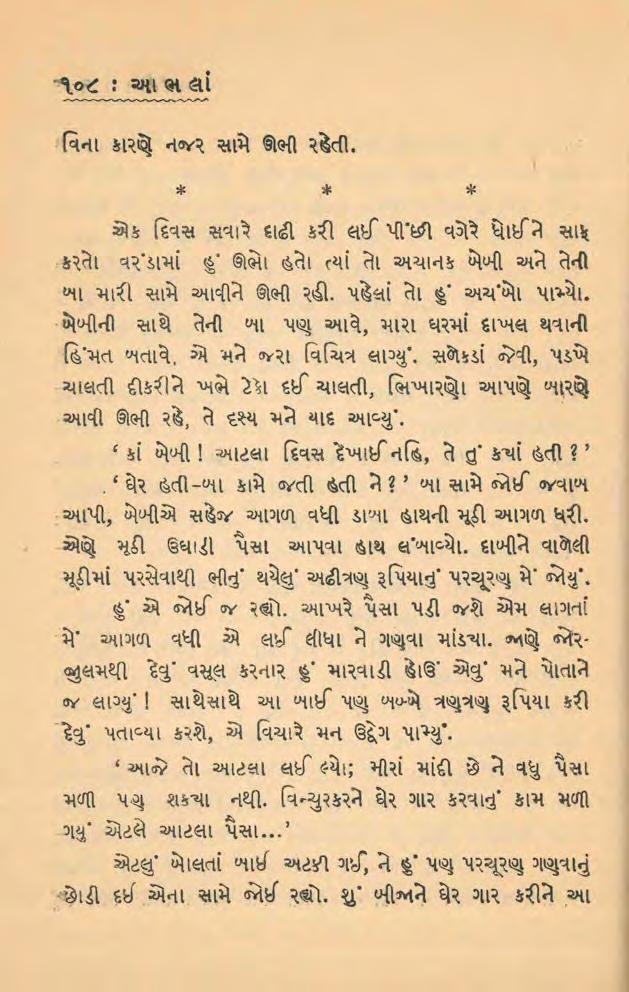 ૧૦૮ : આભલાં
વિના કારણે નજર સામે ઊભી રહેતી.
* * *
એક દિવસ સવારે દાઢી કરી લઈ પીંછી વગેરે ધોઈને સાફ
કરતો વરંડામાં હું ઊભો હતો ત્યાં તો અચાનક બેબી અને તેની
બા મારી સામે આવીને ઊભી રહી. પહેલાં તો હું અચંબો પામ્યો.
બેબીની સાથે તેની બા પણ આવે, મારા ઘરમાં દાખલ થવાની
હિંમત બતાવે, એ મને જરા વિચિત્ર લાગ્યું. સળેકડાં જેવી, પડખે
ચાલતી દીકરીને ખભે ટેકો દઈ ચાલતી, ભિખારણો આપણે બારણે
આવી ઊભી રહે, તે દૃશ્ય મને યાદ આવ્યું.
‘ કાં બેબી ! આટલા દિવસ દેખાઈ નહિ, તે તું ક્યાં હતી ? ’
‘ ઘેર હતી–બા કામે જતી હતી ને ? ’ બા સામે જોઈ જવાબ
આપી, બેબીએ સહેજ આગળ વધી ડાબા હાથની મૂઠી આગળ ધરી.
એણે મૂઠી ઉઘાડી પૈસા આપવા હાથ લંબાવ્યો. દાબીને વાળેલી
મૂઠીમાં પરસેવાથી ભીનું થયેલું અઢીત્રણ રૂપિયાનું પરચૂરણ મેં જોયું.
હું એ જોઈ જ રહ્યો. આખરે પૈસા પડી જશે એમ લાગતાં
મેં આગળ વધી એ લઈ લીધા ને ગણવા માંડ્યા. જાણે જોર-
જુલમથી દેવું વસૂલ કરનાર હું મારવાડી હોઉં એવું મને પોતાને
જ લાગ્યું ! સાથેસાથે આ બાઈ પણ બબ્બે ત્રણત્રણ રૂપિયા કરી
દેવું પતાવ્યા કરશે, એ વિચારે મન ઉદ્વેગ પામ્યું.
‘ આજે તો આટલા લઈ લ્યો; મીરાં માંદી છે ને વધુ પૈસા
મળી પણ શક્યા નથી. વિન્ચુરકરને ઘેર ગાર કરવાનું કામ મળી
ગયું એટલે આટલા પૈસા...’
એટલું બોલતાં બાઈ અટકી ગઈ, ને હું પણ પરચૂરણ ગણવાનું
છોડી દઈ એના સામે જોઈ રહ્યો. શું બીજાને ઘેર ગાર કરીને આ